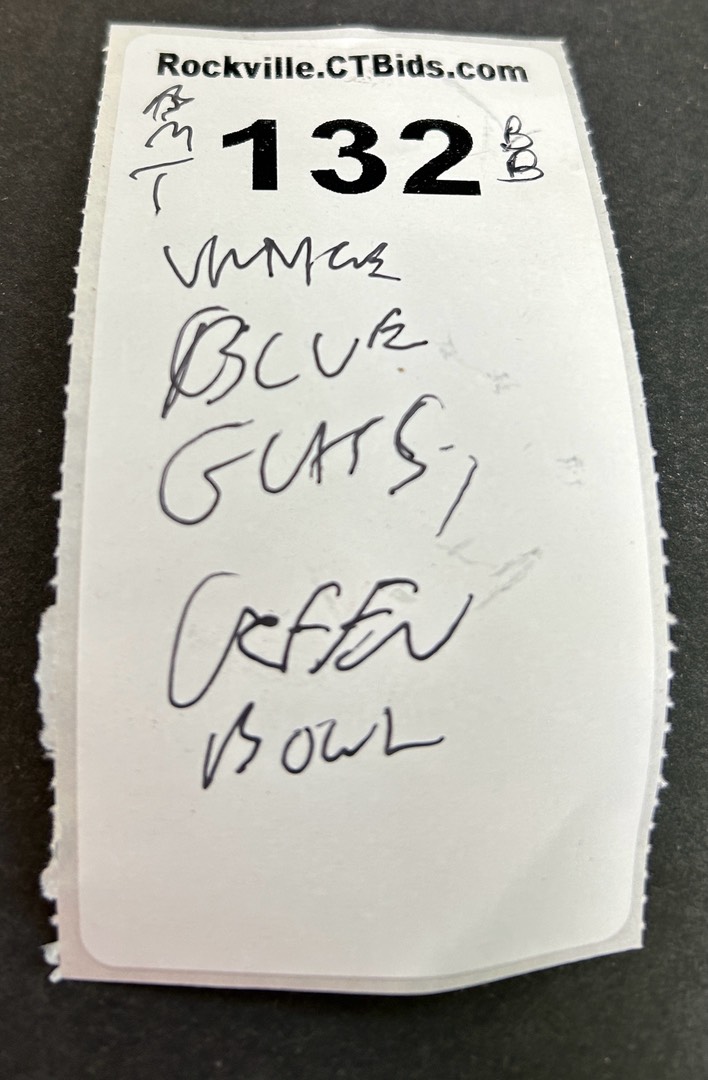 Rockville.CTBids.com
132
BB
BLUE
GLASS,
GREEN
BOWL